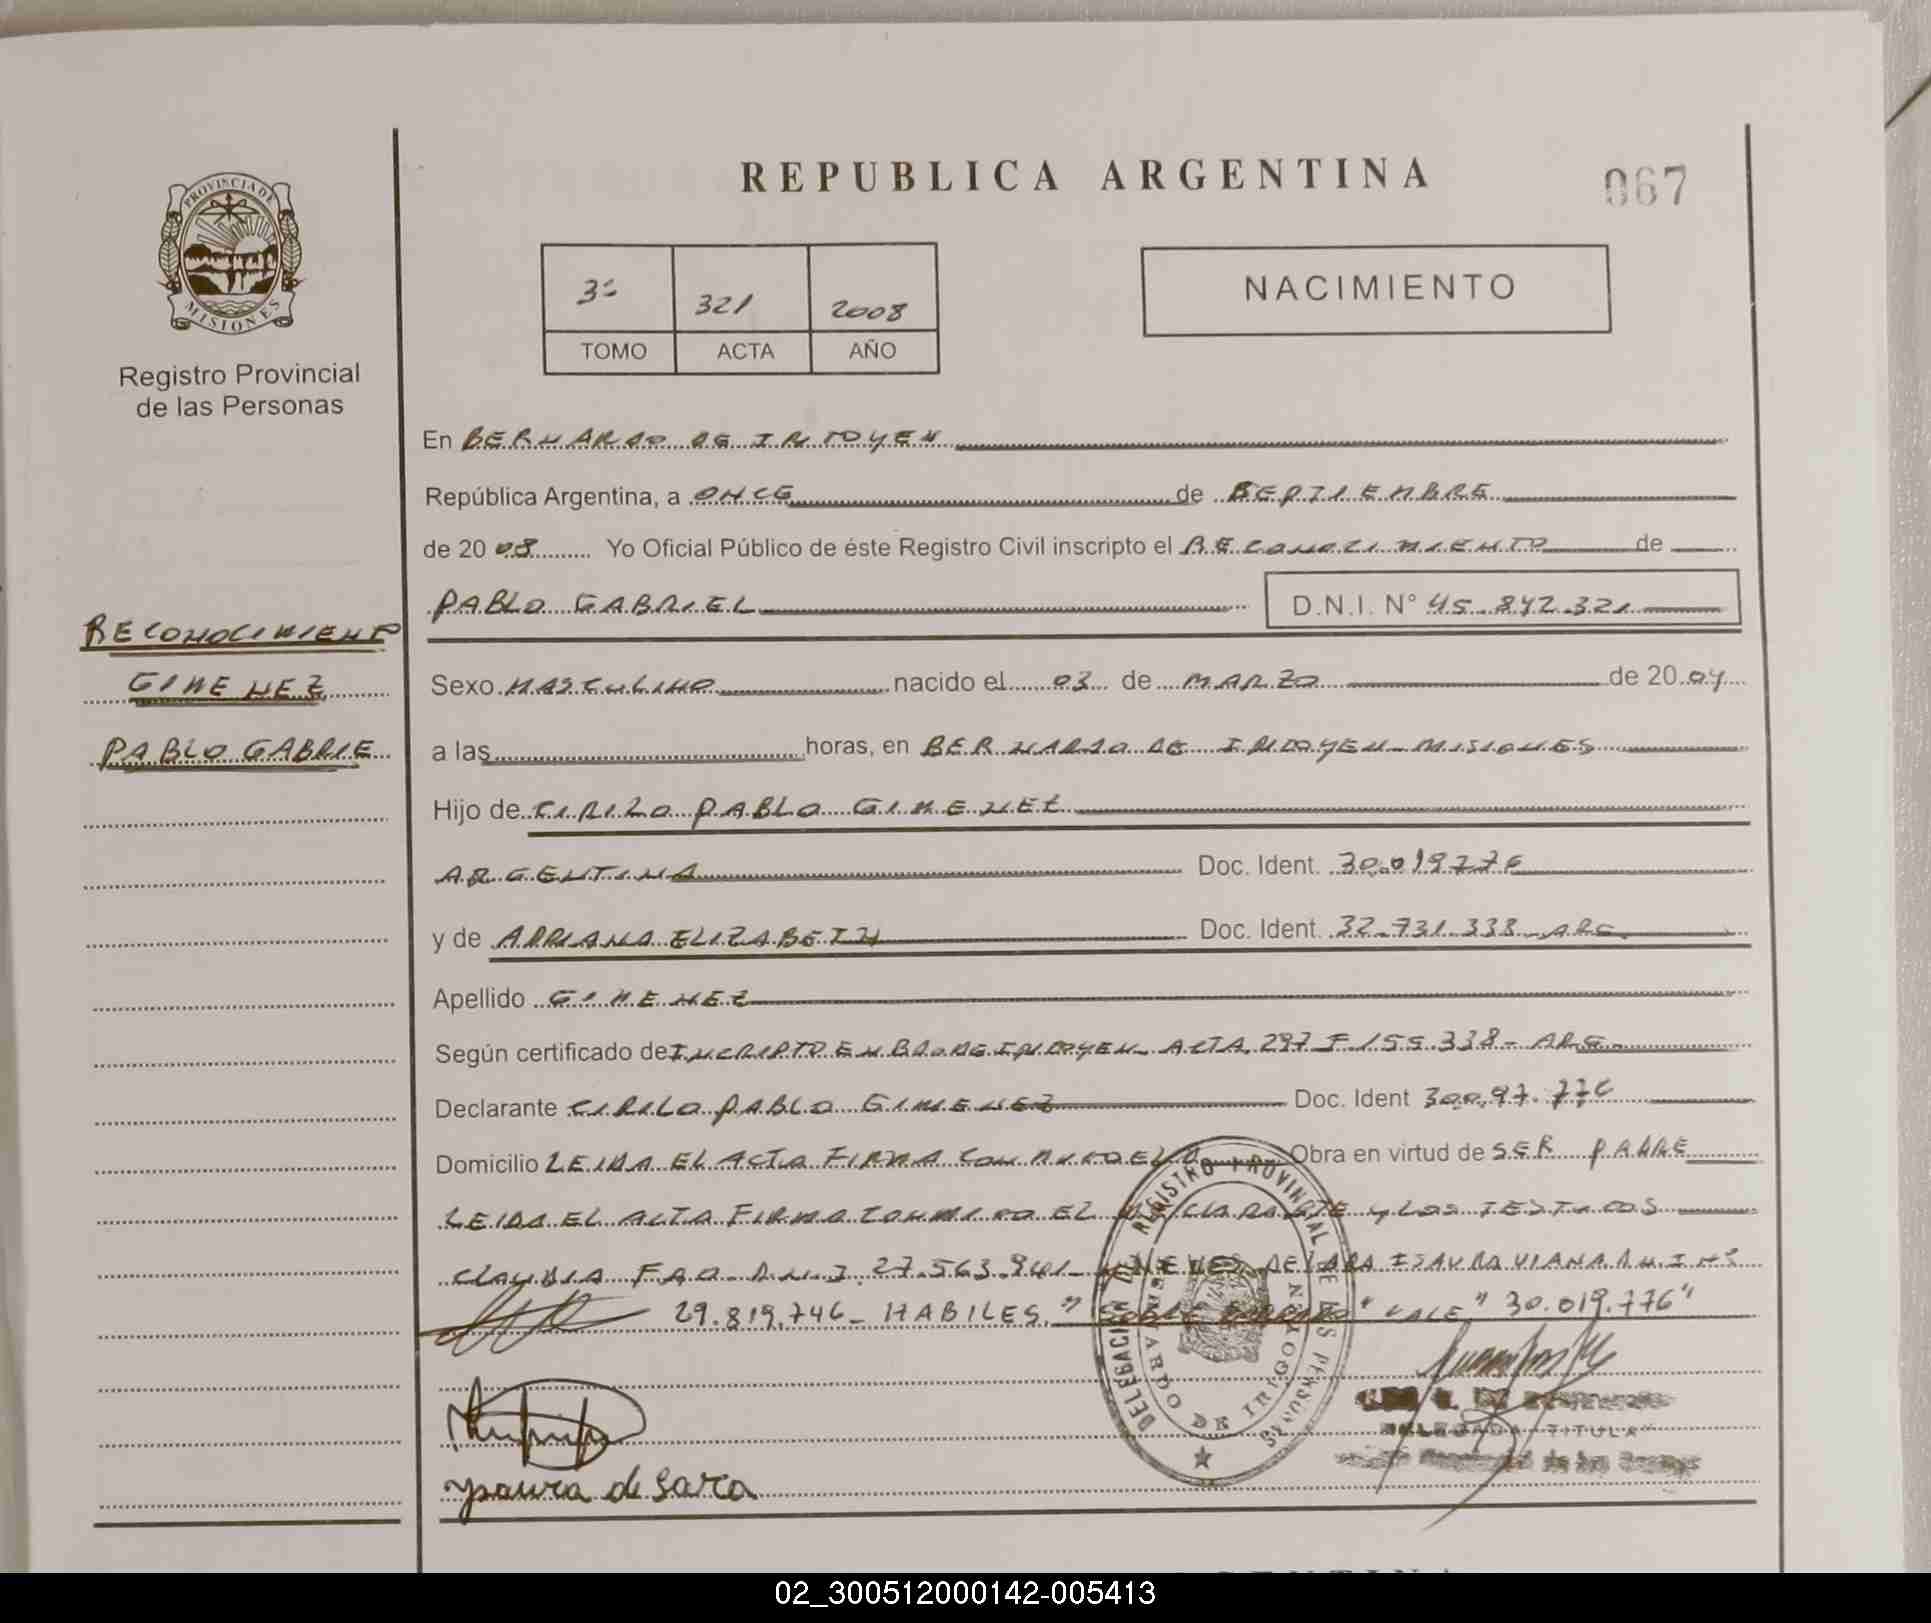 REPUBLICA ARGENTINA
067
PROVINCIA DE
MISIONES
Registro Provincial
de las Personas
3º 321 2008
TOMO ACTA AÑO
NACIMIENTO
En BERNARDO DE IRIGOYEN
República Argentina, a ONCE de SEPTIEMBRE
de 2008 Yo Oficial Público de éste Registro Civil inscripto el RECONOCIMIENTO de
PABLO GABRIEL D.N.I. N° 45.842.321
RECONOCIMIENTO
GIMENEZ
PABLO GABRIE
Sexo MASCULINO nacido el 03 de MARZO de 2004
a las horas, en BERNARDO DE IRIGOYEN MISIONES
Hijo de CIRILO PABLO GIMENEZ
ARGENTINA Doc. Ident. 30.019776
y de ADRIANA ELIZABETH Doc. Ident. 32.731.338 ARG.
Apellido GIMENEZ
Según certificado de INCRIPTO EN BDO DE IRIGOYEN ACTA 297 F 155 338 - ARG
Declarante CIRILO PABLO GIMENEZ Doc. Ident
Domicilio LEIDA EL ACTA FIRMA CON Obra en virtud de SER PADRE
LEIDA EL ACTA FIRMA CONMIGO EL DECLARANTE Y LOS TESTIGOS
CLAUDIA 27.563.941 NIEVES DE LARA ISAURA VIANA D.N.I Nº
29.819.746 - HABILES. "SOBRE BORRADO" "VALE" 30.019.776"
DELEGACION DE REGISTRO PROVINCIAL DE LAS PERSONAS
BERNARDO DE IRIGOYEN
DELEGADA TITULAR
de Sara
02_300512000142-005413